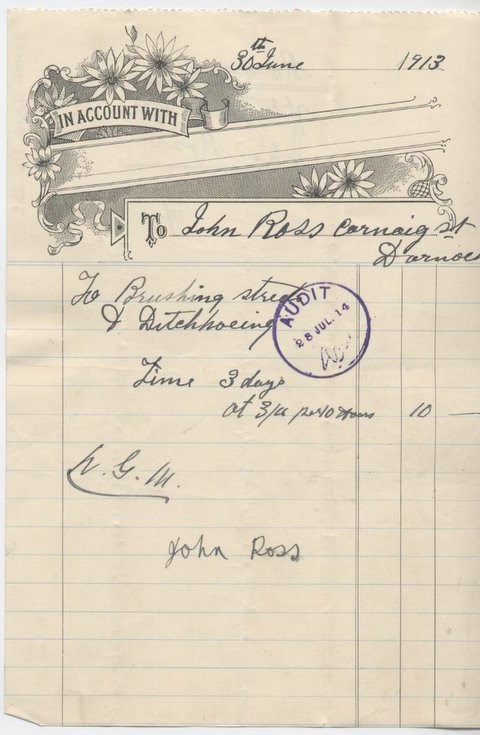 30th June 1913
IN ACCOUNT WITH
To John Ross Carnaig St
Dornoc
To Brushing streets
& Ditchhoeing
AUDIT
28 JUL. 14
Time 3 days
at 3/4 per 10 Hours 10 —
W. G. M.
John Ross